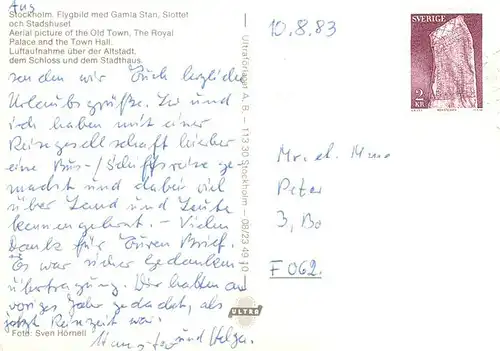 Aus
Stockholm. Flygbild med Gamla Stan, Slottet
och Stadshuset
Aerial picture of the Old Town, The Royal
Palace and the Town Hall.
Luftaufnahme über der Altstadt,
dem Schloss und dem Stadthaus.
senden wir Euch herzliche
Urlaubsgrüße. und
ich haben mit einer
Reisegesellschaft hierher
eine Bus-/Schiffsreise ge-
macht und dabei viel
über Land und Leute
kennengelernt. – Vielen
Dank für Euren Brief.
Es war sicher Gedanken-
übertragung. Wir hatten an
voriges Jahr gedacht, als
jetzt Reisezeit war.
und Helga.
Foto: Sven Hörnell
ULTRA
Ultraförlaget A.B. – 113 30 Stockholm – 08/23 49 10
10.8.83
SVERIGE
2
KR
Mr. et. Mme
Peter
3, Bo
F 062.